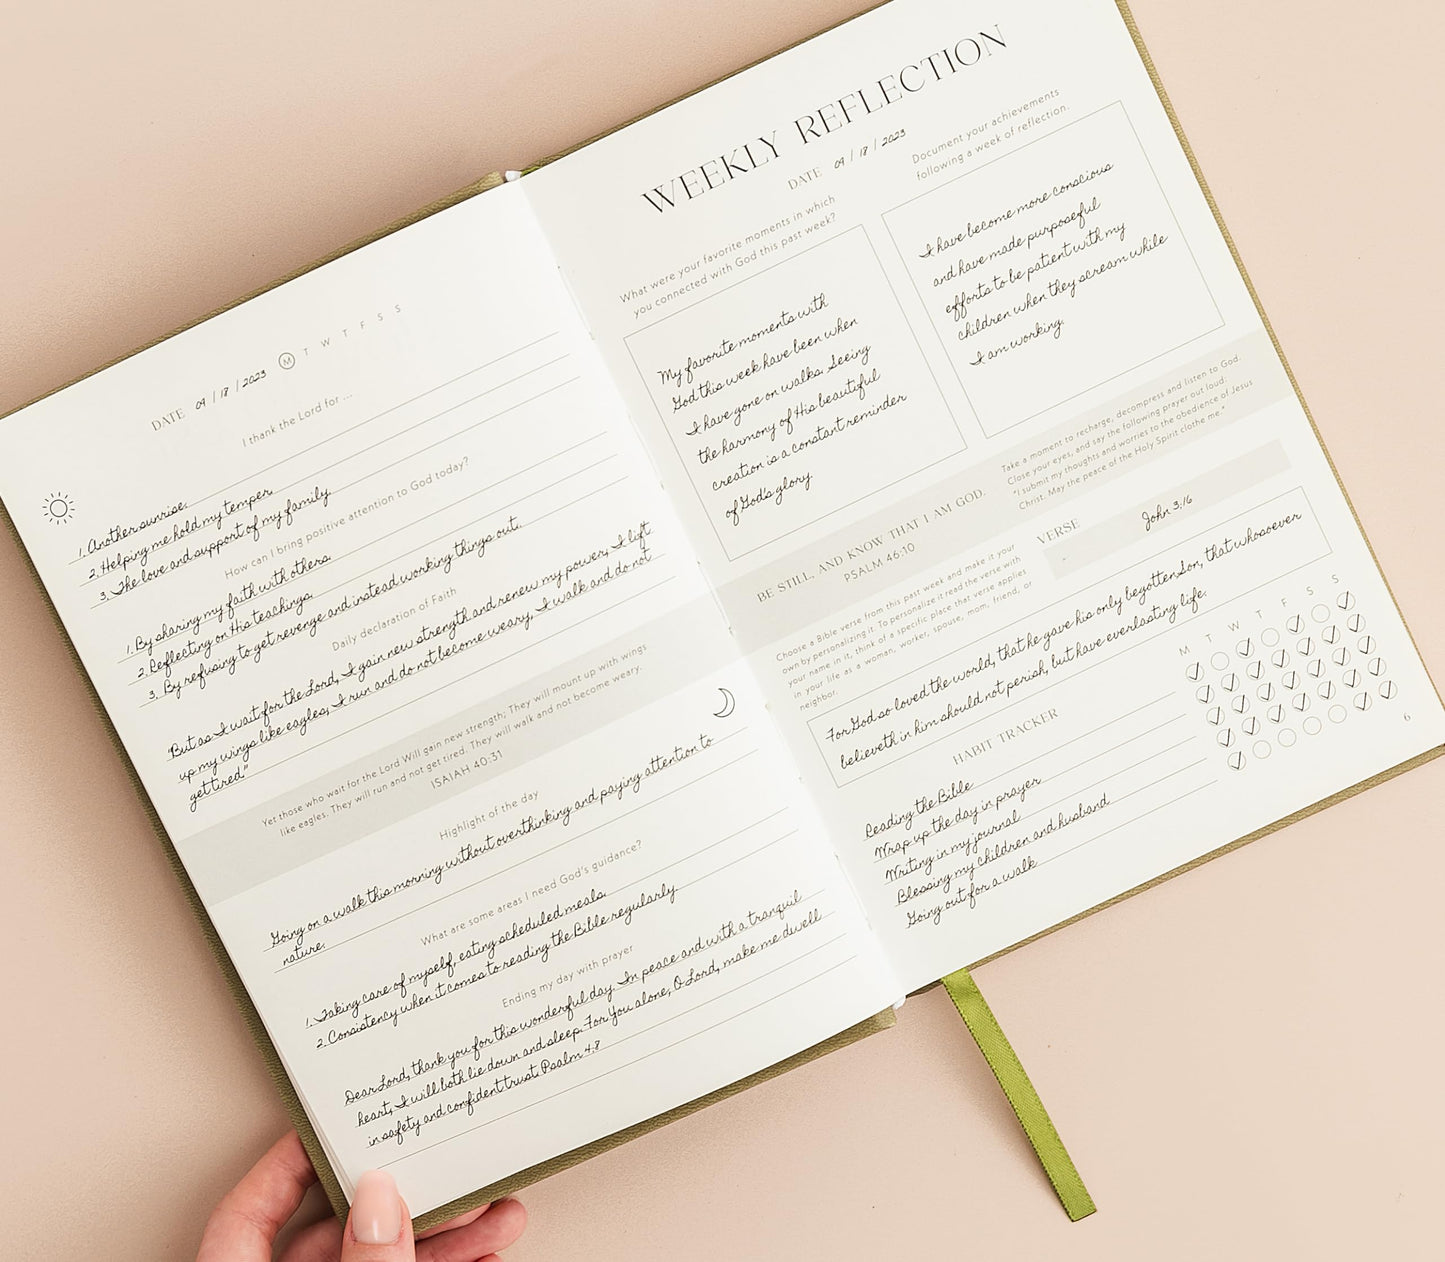 DATE 09 / 18 / 2023 M T W T F S S
I thank the Lord for ...
1. Another sunrise.
2. Helping me hold my temper.
3. The love and support of my family.
How can I bring positive attention to God today?
1. By sharing my faith with others.
2. Reflecting on His teachings.
3. By refusing to get revenge and instead working things out.
Daily declaration of Faith
"But as I wait for the Lord, I gain new strength and renew my power, I lift
up my wings like eagles, I run and do not become weary, I walk and do not
get tired."
Yet those who wait for the Lord Will gain new strength; They will mount up with wings
like eagles. They will run and not get tired. They will walk and not become weary.
ISAIAH 40:31
Highlight of the day
Going on a walk this morning without overthinking and paying attention to
nature.
What are some areas I need God's guidance?
1. Taking care of myself, eating scheduled meals.
2. Consistency when it comes to reading the Bible regularly
Ending my day with prayer
Dear Lord, thank you for this wonderful day. In peace and with a tranquil
heart, I will both lie down and sleep. For You alone, O Lord, make me dwell
in safety and confident trust. Psalm 4:8
WEEKLY REFLECTION
DATE 09 / 18 / 2023
What were your favorite moments in which
you connected with God this past week?
My favorite moments with
God this week have been when
I have gone on walks. Seeing
the harmony of His beautiful
creation is a constant reminder
of God's glory.
Document your achievements
following a week of reflection.
I have become more conscious
and have made purposeful
efforts to be patient with my
children when they scream while
I am working.
BE STILL, AND KNOW THAT I AM GOD.
PSALM 46:10
Take a moment to recharge, decompress and listen to God.
Close your eyes, and say the following prayer out loud:
"I submit my thoughts and worries to the obedience of Jesus
Christ. May the peace of the Holy Spirit clothe me."
Choose a Bible verse from this past week and make it your
own by personalizing it. To personalize it read the verse with
your name in it, think of a specific place that verse applies
in your life as a woman, worker, spouse, mom, friend, or
neighbor.
VERSE
John 3:16
For God so loved the world, that he gave his only begotten Son, that whosoever
believeth in him should not perish, but have everlasting life.
HABIT TRACKER
M T W T F S S
Reading the Bible
Wrap up the day in prayer
Writing in my journal
Blessing my children and husband
Going out for a walk
6